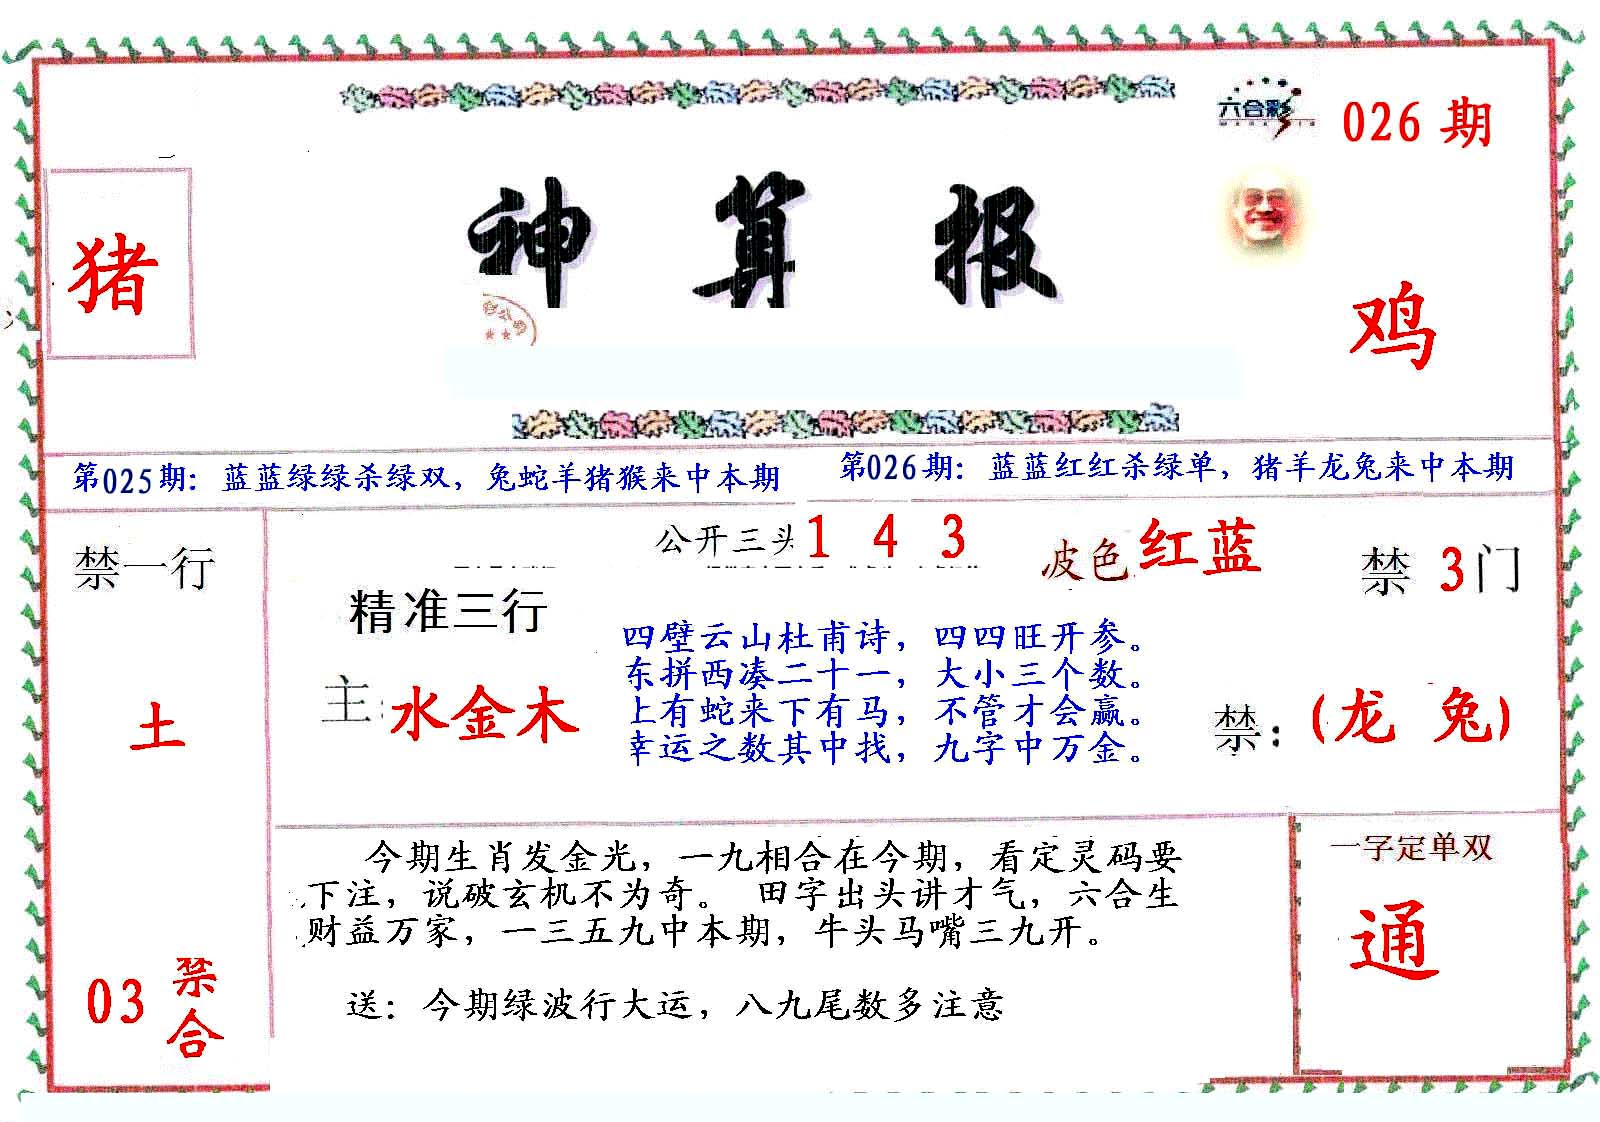 六合彩
026 期
神算报
猪
鸡
第025期：蓝蓝绿绿杀绿双，兔蛇羊猪猴来中本期
第026期：蓝蓝红红杀绿单，猪羊龙兔来中本期
禁一行
土
03
禁
合
公开三头 1 4 3
波色 红蓝
精准三行
主：水金木
四壁云山杜甫诗，四四旺开参。
东拼西凑二十一，大小三个数。
上有蛇来下有马，不管才会赢。
幸运之数其中找，九字中万金。
禁 3 门
禁：(龙 兔)
今期生肖发金光，一九相合在今期，看定灵码要
下注，说破玄机不为奇。 田字出头讲才气，六合生
财益万家，一三五九中本期，牛头马嘴三九开。
送：今期绿波行大运，八九尾数多注意
一字定单双
通